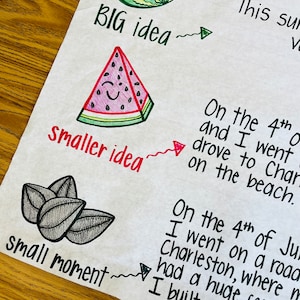 BIG idea
This su
smaller idea
On the 4th o
and I went
drove to Char
on the beach.
small moment
On the 4th of Ju
I went on a road
Charleston, where m
had a huge
I built